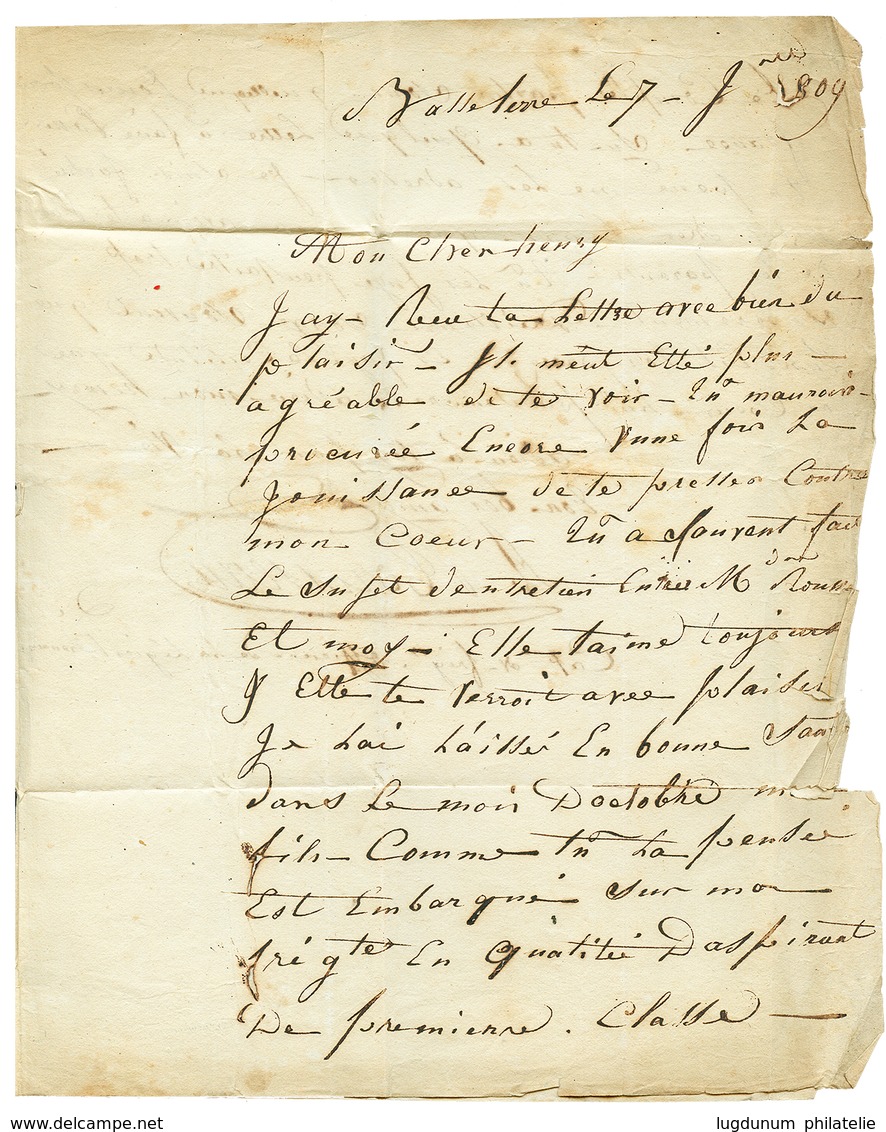 Basseterre Le 7 - J 1809
Mon Cher henry
J'ay - Reeu ta Lettre avec bien du
plaisir - Il m'eut Etté plus -
agréable de te voir - Tu mauroir -
procurée Encore Vune fois La
Jouissance de te presser Contre
mon Coeur - Tu a Souvent fait
Le Sujet d'entretien Entre Mdme
Et moy - Elle taime toujours
Y Elle te verroit avec plaisir
Je Lai Laissé En bonne
dans Le mois Doctobre
fils - Comme tu La pensée
Est Embarqué Sur mon
frégte En Qualitée Daspirant
De premierre . Classe -
lugdunum philatelie